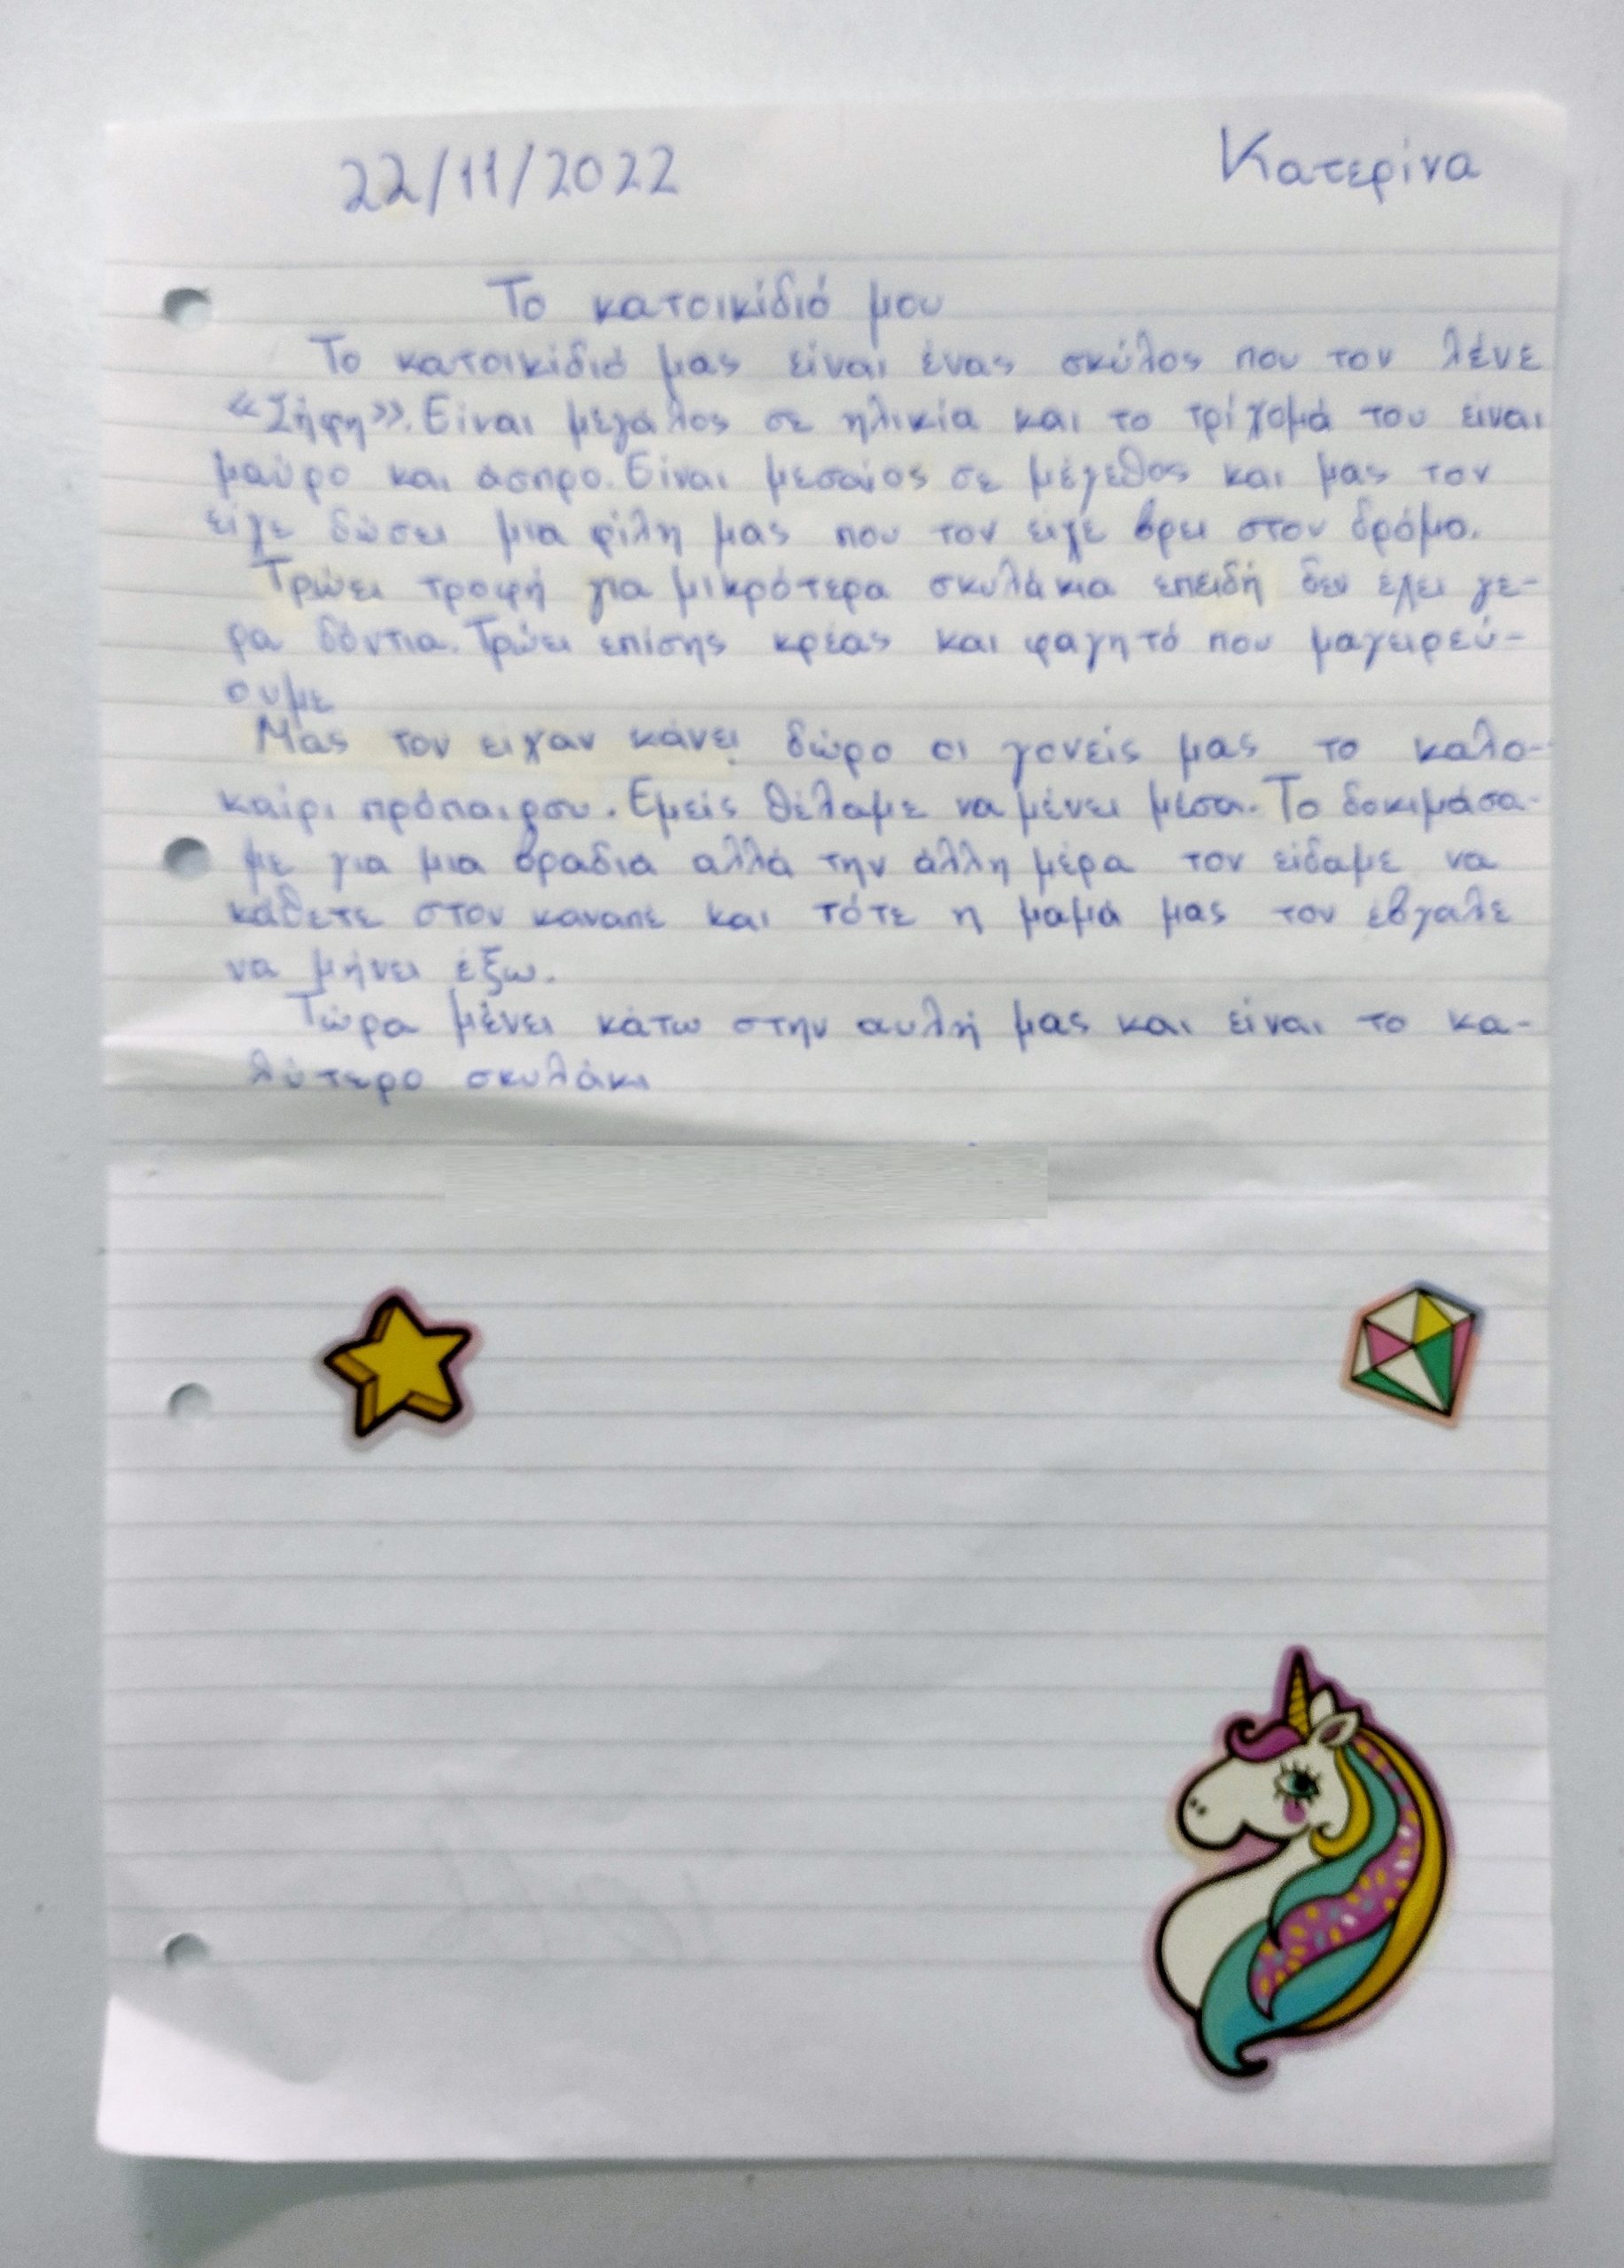 22/11/2022 Κατερίνα
Το κατοικίδιό μου
Το κατοικίδιό μας είναι ένας σκύλος που τον λένε
«Σήφη». Είναι μεγάλος σε ηλικία και το τρίχομά του είναι
μαύρο και άσπρο. Είναι μεσαίος σε μέγεθος και μας τον
είχε δώσει μια φίλη μας που τον είχε βρει στον δρόμο.
Τρώει τροφή για μικρότερα σκυλάκια επειδή δεν έχει γε-
ρα δόντια. Τρώει επίσης κρέας και φαγητό που μαγειρεύ-
ουμε
Μας τον είχαν κάνει δώρο οι γονείς μας το καλο-
καίρι πρόπαιρσυ. Εμείς θέλαμε να μένει μέσα. Το δοκιμάσα-
με για μια βραδιά αλλά την άλλη μέρα τον είδαμε να
κάθετε στον καναπέ και τότε η μαμά μας τον έβγαλε
να μήνει έξω.
Τώρα μένει κάτω στην αυλή μας και είναι το κα-
λύτερο σκυλάκι